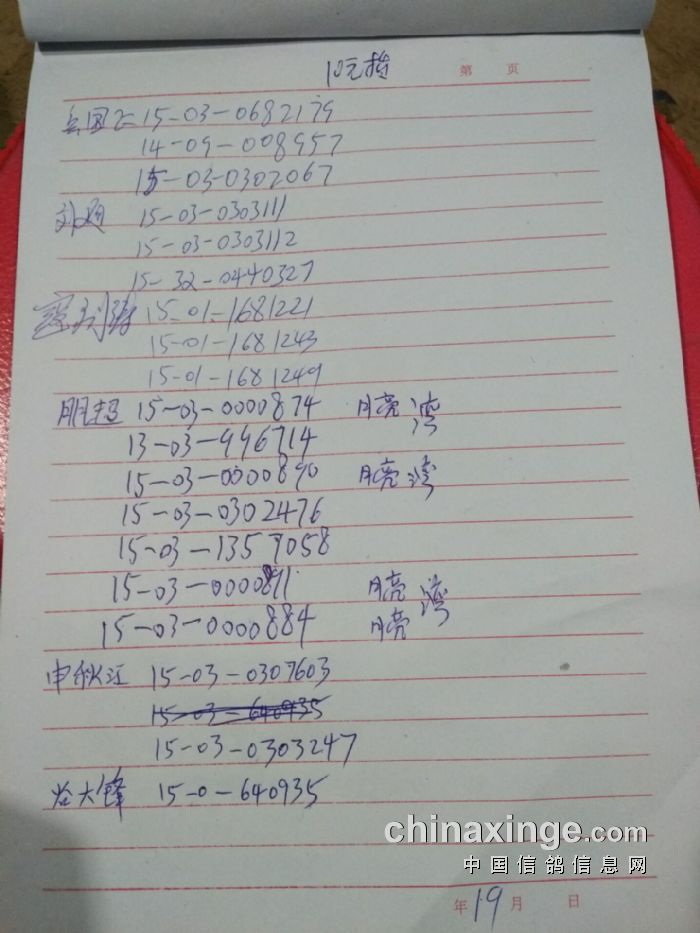 10元档 第 页
15-03-0682179
14-09-008957
15-03-0302067
15-03-0303111
15-03-0303112
15-32-0440327
15-01-1681221
15-01-1681243
15-01-1681249
15-03-0000874 月亮湾
13-03-996714
15-03-0000890 月亮湾
15-03-0302476
15-03-1357058
15-03-0000891 月亮湾
15-03-0000884 月亮
申秋江 15-03-0307603
15-03-640935
15-03-0303247
谷大锋 15-0-640935
chinaxinge.com
中国信鸽信息网
年 19 月 日